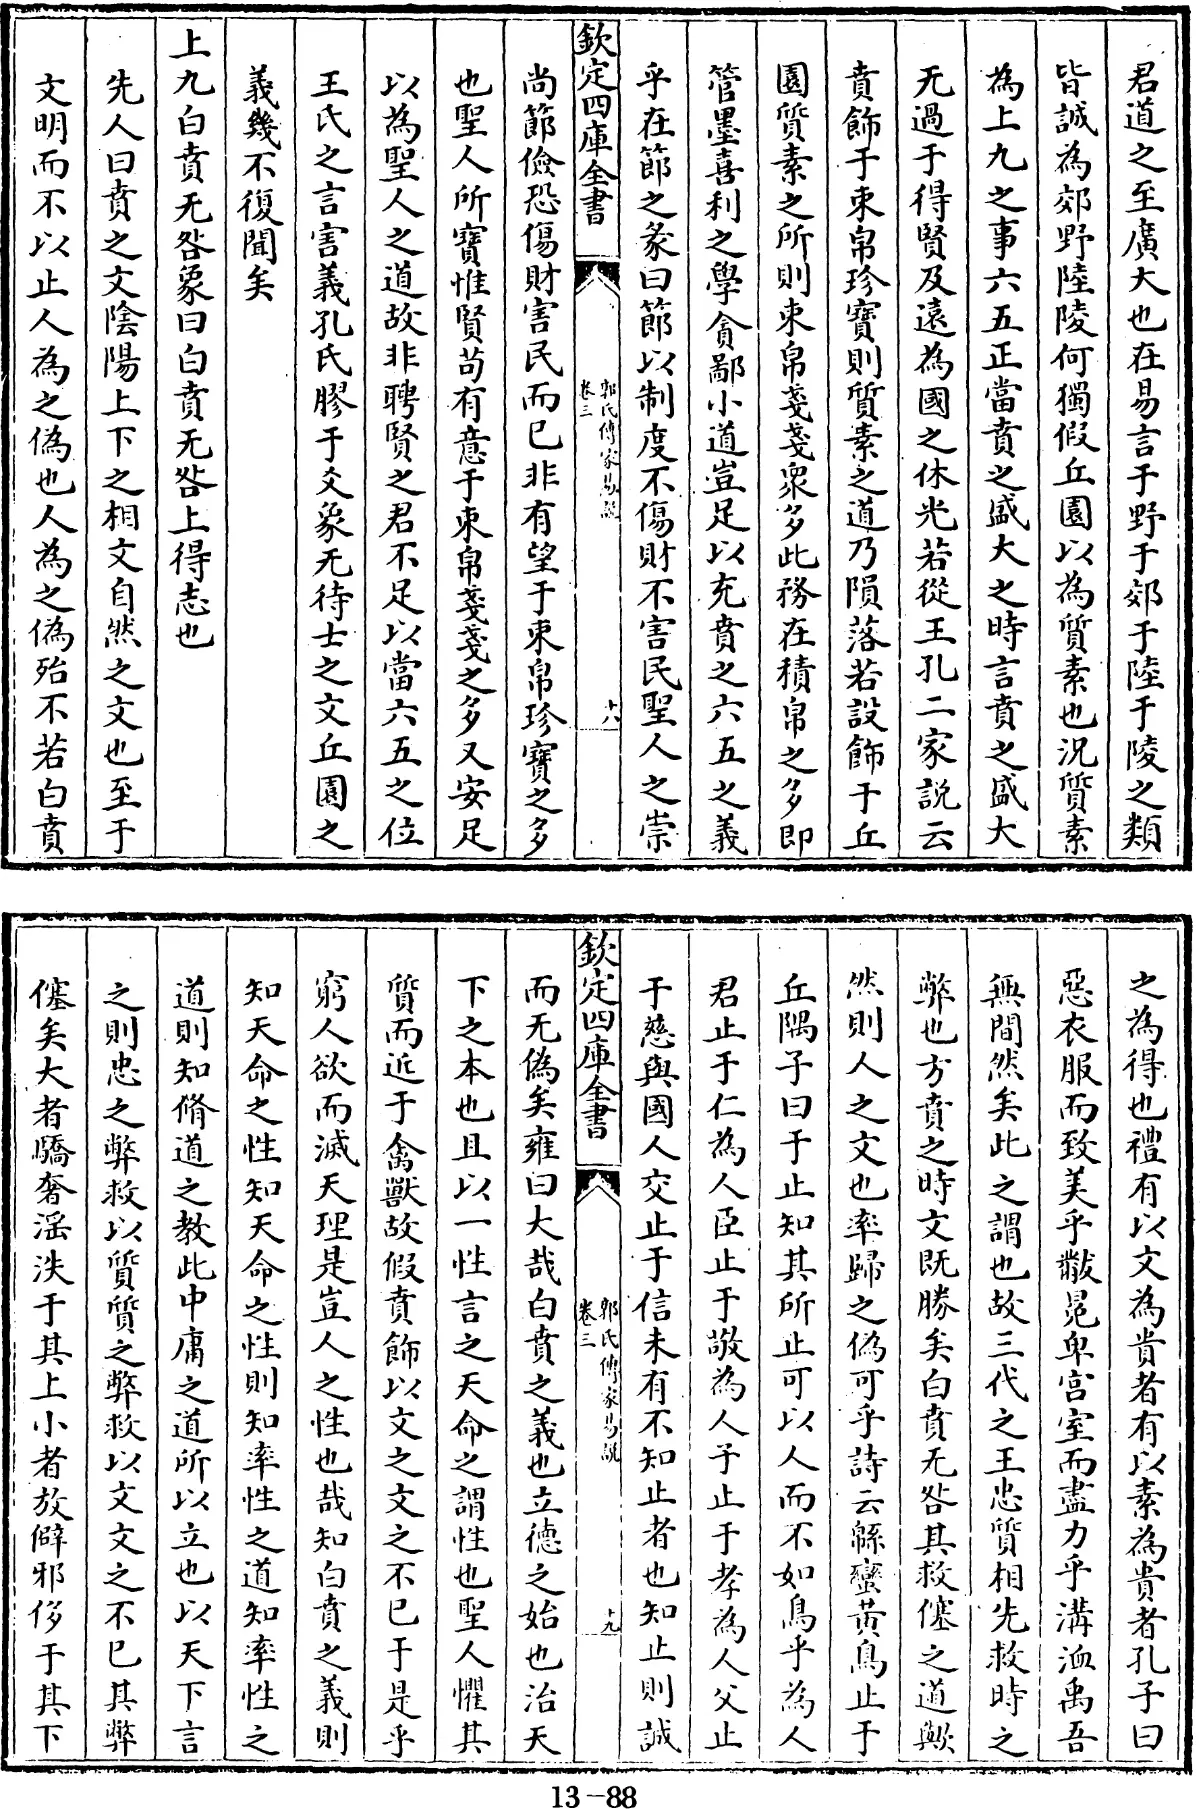 君道之至廣大也在易言于野于郊于陸于陵之類
皆誠為郊野陸陵何獨假丘園以為質素也況質素
為上九之事六五正當賁之盛大之時言賁之盛大
无過于得賢及遠為國之休光若從王孔二家説云
賁飾于束帛珍寶則質素之道乃隕落若設飾于丘
園質素之所則束帛戔戔衆多此務在積帛之多即
管墨喜利之學貪鄙小道豈足以充賁之六五之義
乎在節之彖曰節以制度不傷財不害民聖人之崇
欽定四庫全書
郭氏傳家易說
卷三
十八
尚節儉恐傷財害民而已非有望于束帛珍寶之多
也聖人所寶惟賢苟有意于束帛戔戔之多又安足
以為聖人之道故非聘賢之君不足以當六五之位
王氏之言害義孔氏膠于爻象无待士之文丘園之
義幾不復聞矣
上九白賁无咎象曰白賁无咎上得志也
先人曰賁之文陰陽上下之相文自然之文也至于
文明而不以止人為之偽也人為之偽殆不若白賁
之為得也禮有以文為貴者有以素為貴者孔子曰
惡衣服而致美乎黻冕卑宮室而盡力乎溝洫禹吾
無間然矣此之謂也故三代之王忠質相先救時之
弊也方賁之時文既勝矣白賁无咎其救僿之道歟
然則人之文也率歸之偽可乎詩云緜蠻黄鳥止于
丘隅子曰于止知其所止可以人而不如鳥乎為人
君止于仁為人臣止于敬為人子止于孝為人父止
于慈與國人交止于信未有不知止者也知止則誠
欽定四庫全書
郭氏傳家易說
卷三
十九
而无偽矣雍曰大哉白賁之義也立德之始也治天
下之本也且以一性言之天命之謂性也聖人懼其
質而近于禽獸故假賁飾以文之文之不已于是乎
窮人欲而滅天理是豈人之性也哉知白賁之義則
知天命之性知天命之性則知率性之道知率性之
道則知脩道之教此中庸之道所以立也以天下言
之則忠之弊救以質質之弊救以文文之不已其弊
僿矣大者驕奢滛泆于其上小者放僻邪侈于其下
13-88